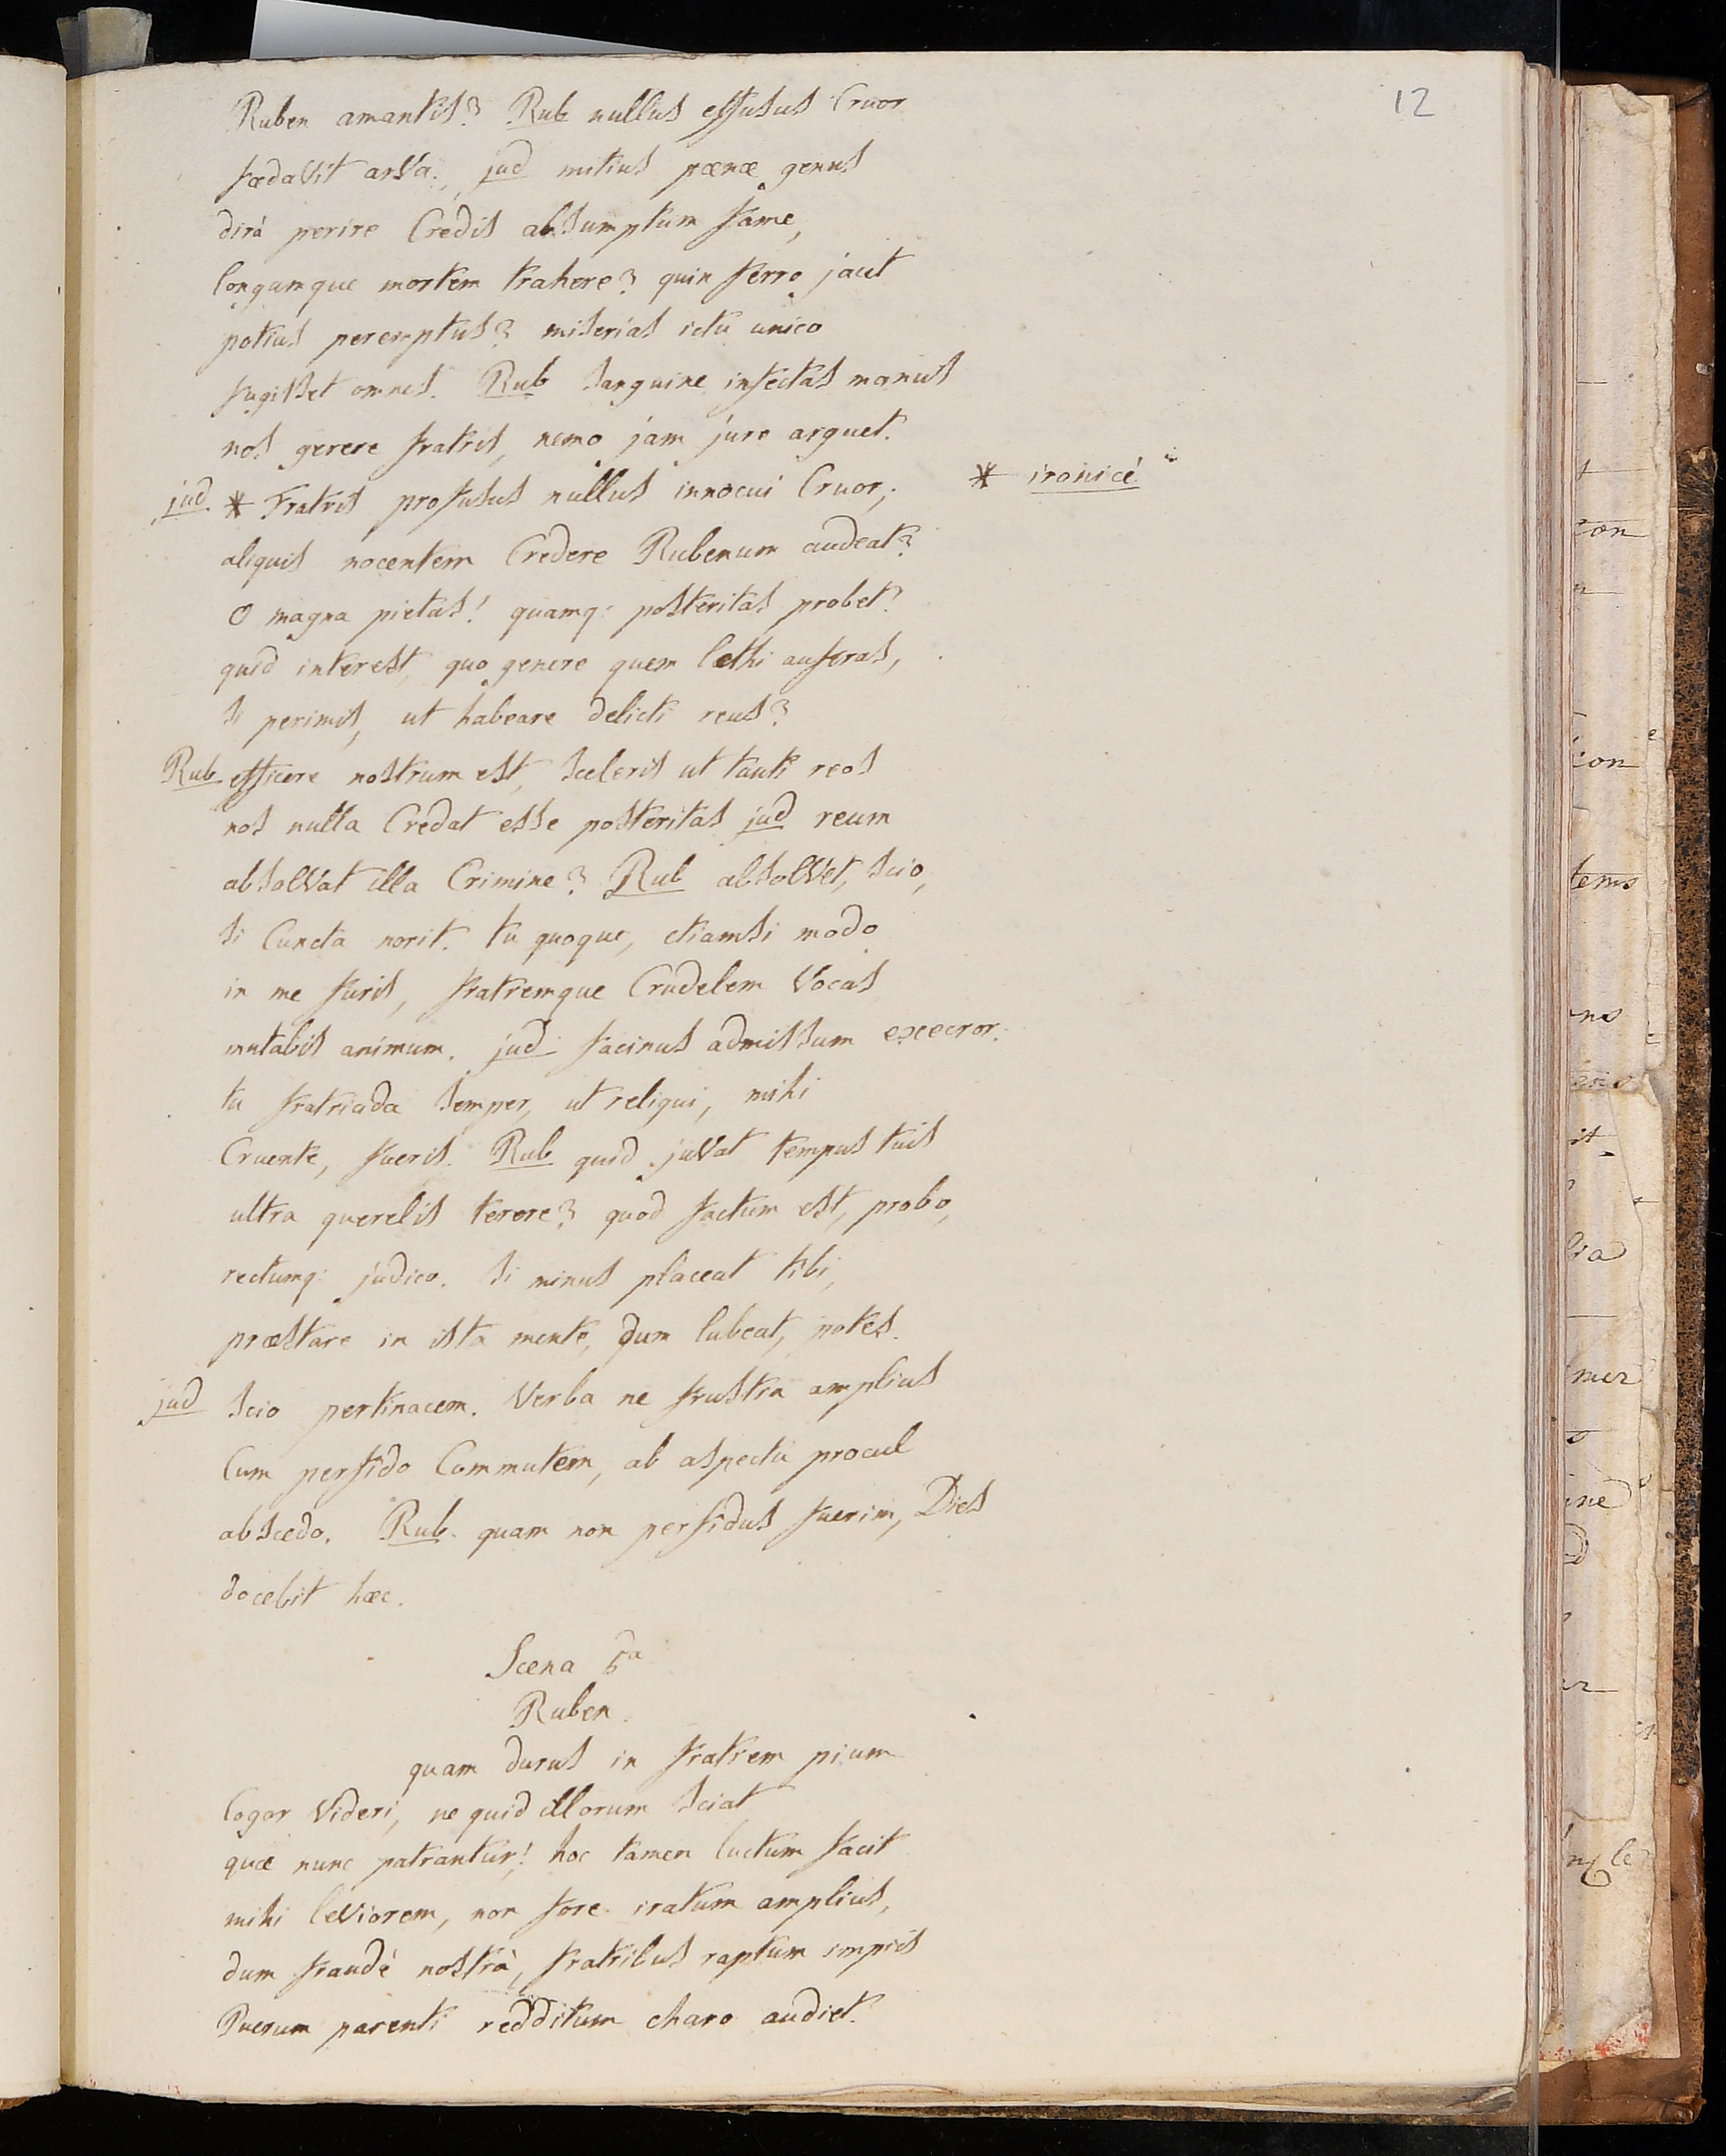 12
Ruben amantis? Rub nullus effusus Cruor
fædavit arva. jud mitius pœnæ genus
dirà perire Credis absumptum fame,
longumque mortem trahere? quin ferro jacit
potius peremptus? miserias ictu unico
fugisset omnes. Rub sanguine infectas manus
nos gerere fratris, nemo jam jure arguet.
jud. * Fratris profusus nullus innocui Cruor; * ironicè
aliquis nocentem Credere Rubenum audeat?
O magna pietas! quamq: posteritas probet!
quid interest, quo genere quem lethi auferas,
si perimis, ut habeare delicti reus?
Rub efficere nostrum est, sceleris ut tanti reos
nos nulla Credat esse posteritas jud reum
absolvat illa Crimine? Rub absolvet, scio,
si Cuncta norit. tu quoque, etiamsi modo
in me furis, fratremque Crudelem Vocas
mutabis animum. jud facinus admissum execror.
tu fratriada semper, ut reliqui, mihi
Cruente, fueris. Rub quid juvat tempus tuis
ultra querelis terere? quod factum est, probo,
rectumq: judico. si minus placeat tibi,
præstare in ista mente, dum lubeat, potes.
jud scio pertinacem. Verba ne frustra amplius
Cum perfido Commutem, ab aspectu procul
abscedo. Rub. quam non perfidus fuerim, Dies
docebit hæc.
Scena 5a
Ruben.
quam durus in fratrem pium
Cogor Videri, ne quid illorum sciat
quæ nunc patrantur! hoc tamen luctum facit
mihi leviorem, non fore iratum amplius,
dum fraudè nostrà, fratribus raptum impiis
Puerum parenti redditum charo audiet.